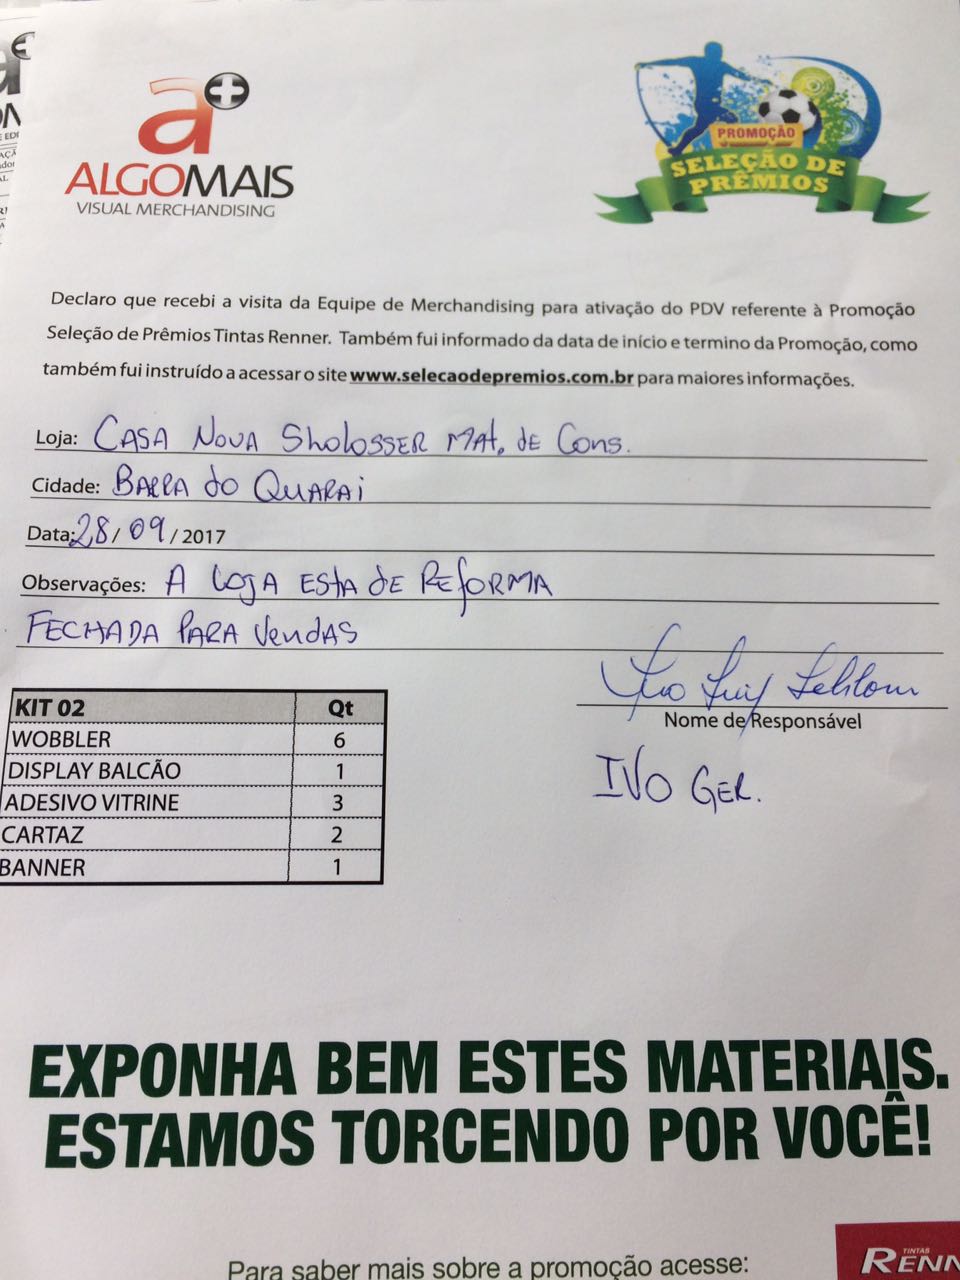 a+
ALGOMAIS
VISUAL MERCHANDISING
PROMOÇÃO
SELEÇÃO DE
PRÊMIOS
Declaro que recebi a visita da Equipe de Merchandising para ativação do PDV referente à Promoção
Seleção de Prêmios Tintas Renner. Também fui informado da data de início e termino da Promoção, como
também fui instruído a acessar o site www.selecaodepremios.com.br para maiores informações.
Loja: CASA NOVA SHOLOSSER MAT. de Cons.
Cidade: BARRA do QUARAi
Data: 28/ 09 / 2017
Observações: A LOJA ESTA de REFORMA
FECHADA PARA VendAS
Nome de Responsável
IVO GER.
KIT 02 Qt
WOBBLER 6
DISPLAY BALCÃO 1
ADESIVO VITRINE 3
CARTAZ 2
BANNER 1
EXPONHA BEM ESTES MATERIAIS.
ESTAMOS TORCENDO POR VOCÊ!
Para saber mais sobre a promoção acesse:
TINTAS